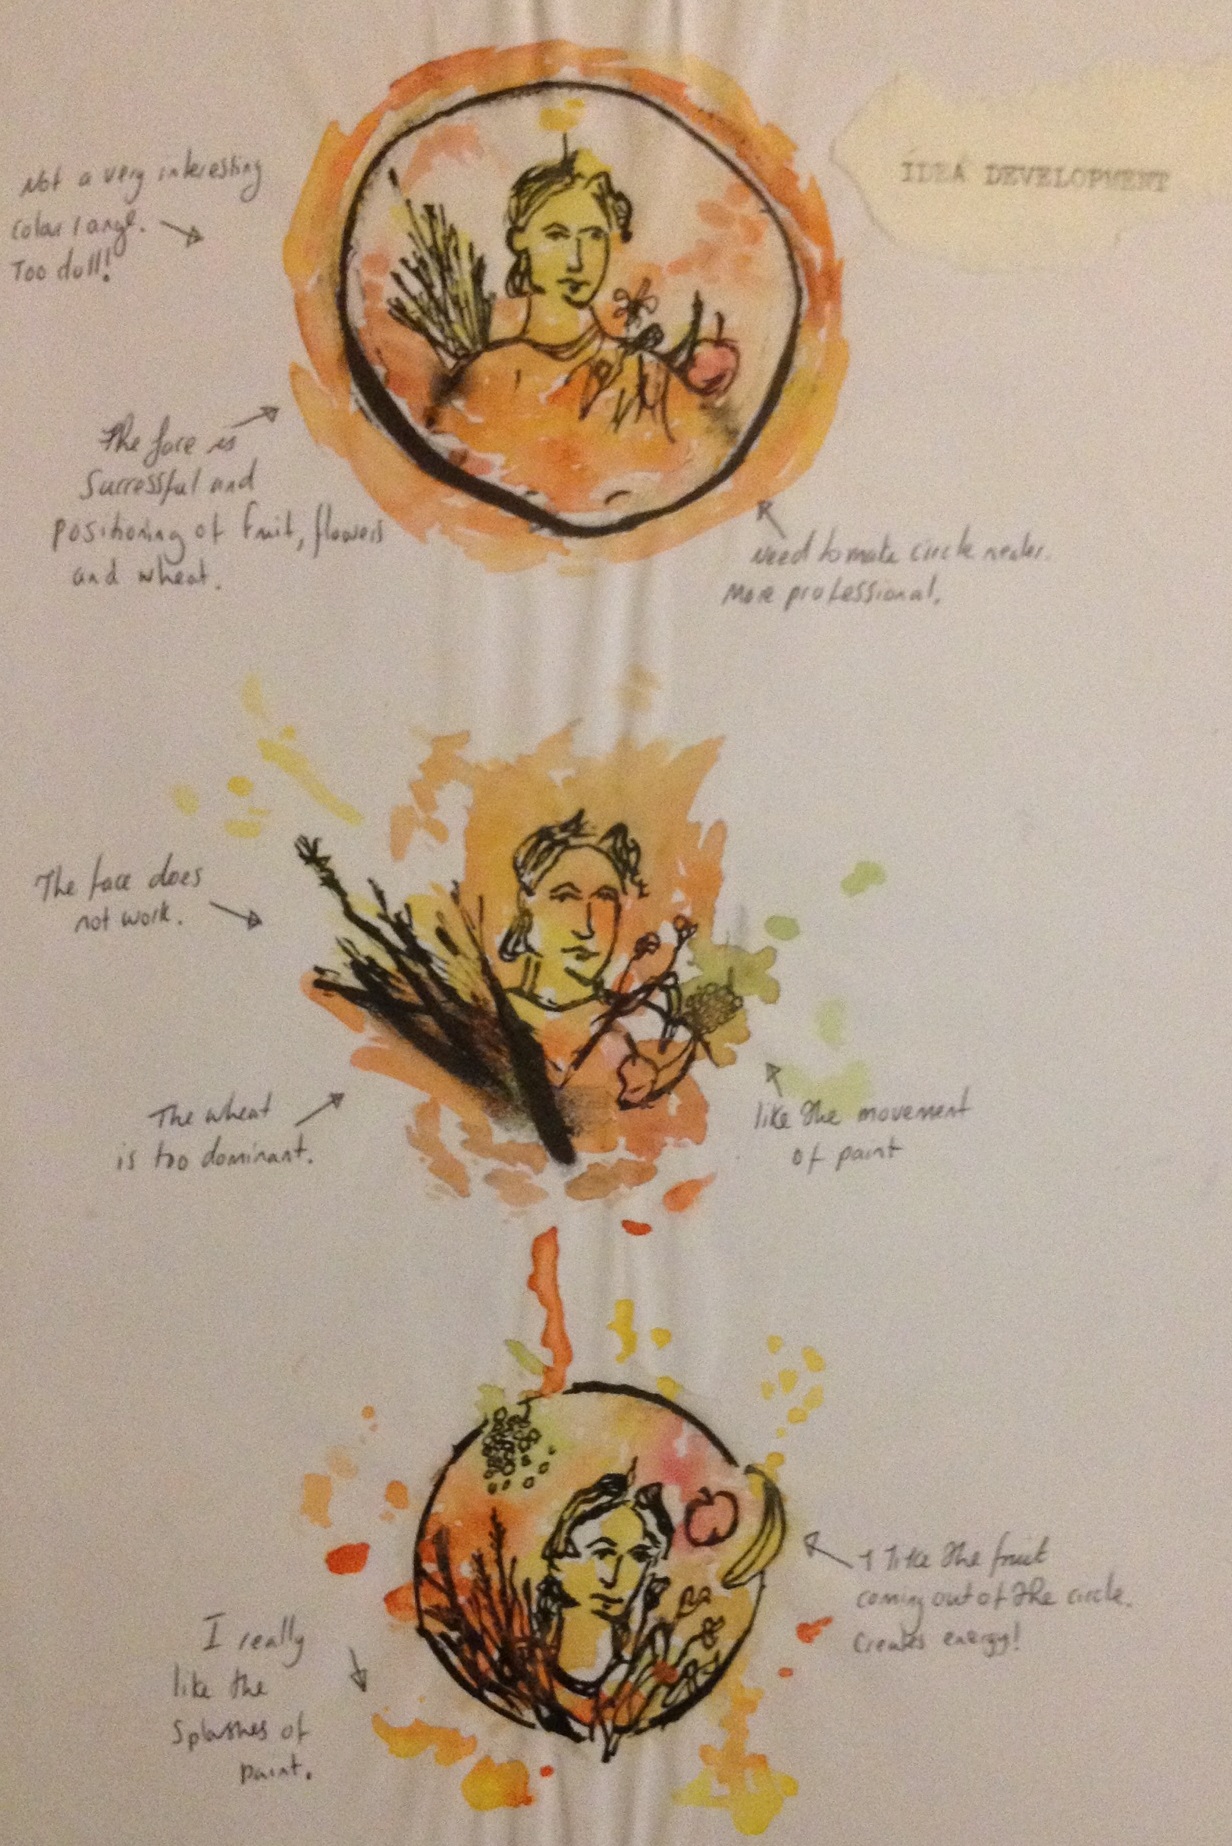 IDEA DEVELOPMENT
Not a very interesting
colour range.
Too dull!
The face is
successful and
positioning of fruit, flowers
and wheat.
Need to make circle neater.
More professional.
The face does
not work.
The wheat
is too dominant.
like the movement
of paint
I like the fruit
coming out of the circle.
Creates energy!
I really
like the
splashes of
paint.